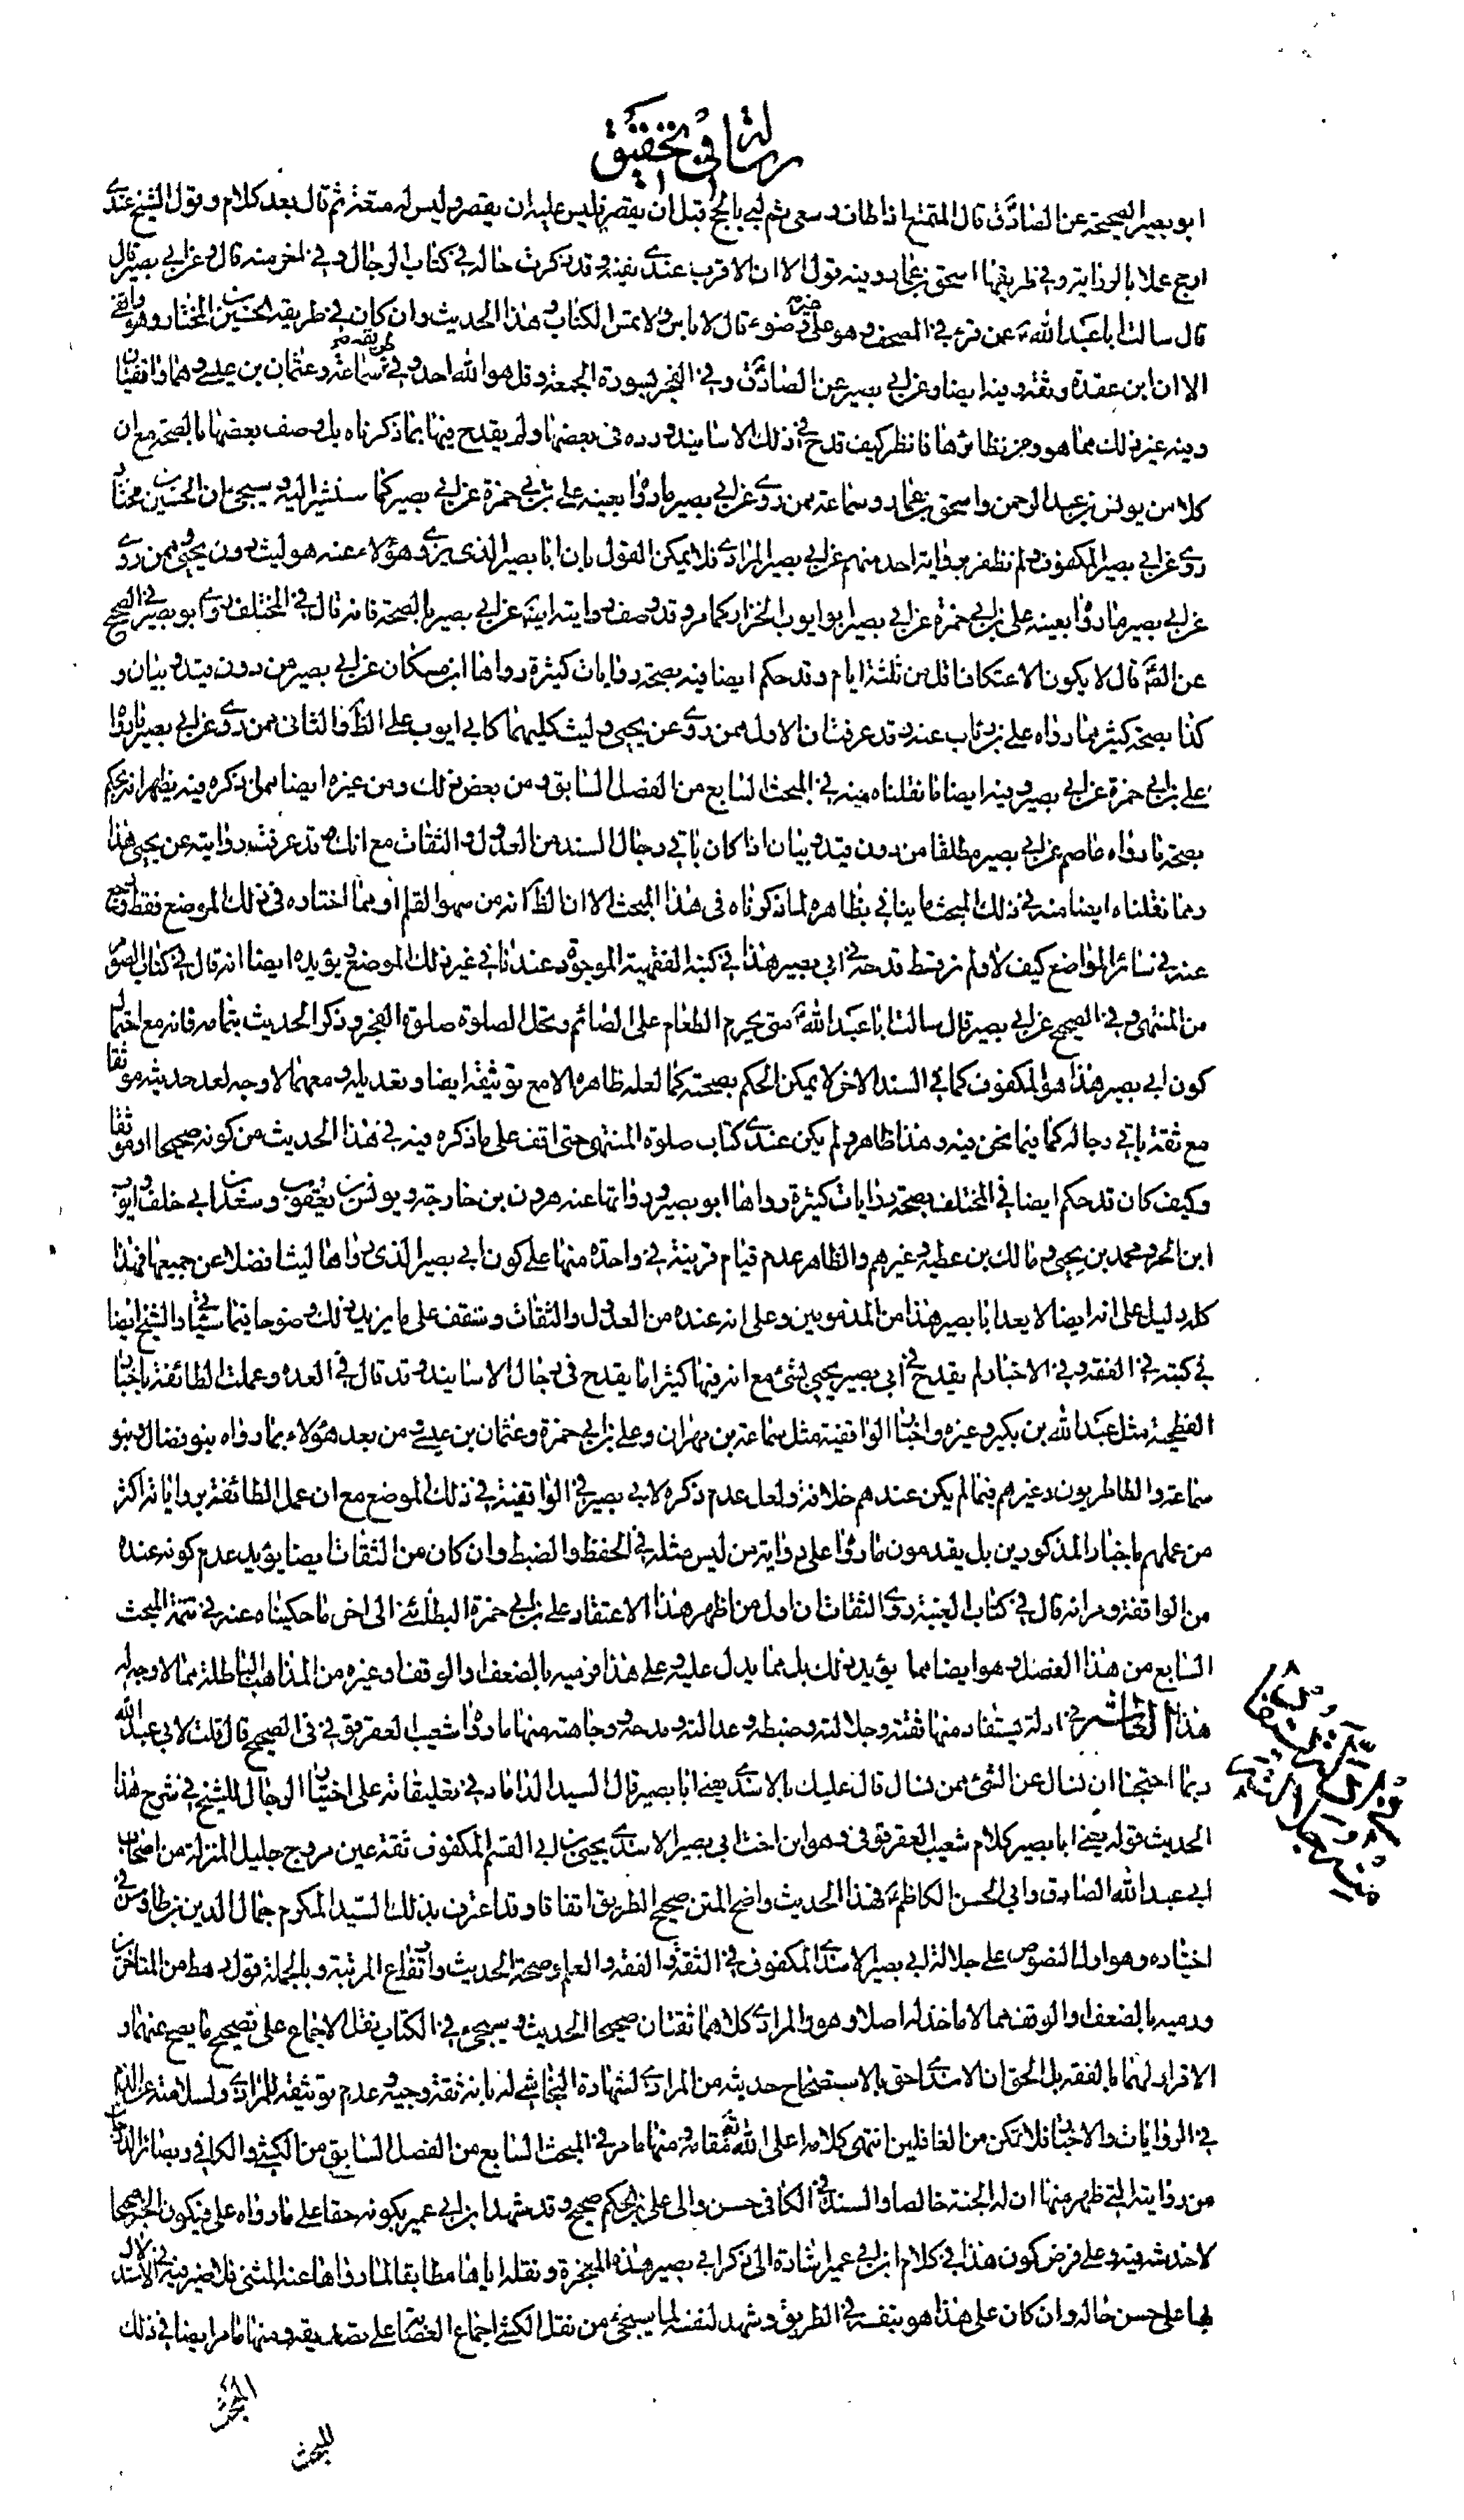 رسالة في تحقيق
ابو بصير الصحيحة عن الصادق قال المتمتع اذا طاف وسعى ثم لبى بالحج قبل ان يقصر فليس عليه ان يقصر وليس له متعة ثم قال بعد كلام وقول الشيخ عندي
ارجح عملا بالرواية وفي طريقها اسحق بن عمار وفيه قول الا ان الاقرب عندي ثقته وقد ذكرت حاله في كتاب الرجال وفي اخر منه قال وعن ابي بصير قال
قال سالت ابا عبد الله ع عن قرء في المصحف وهو على غير وضوء قال لا باس ولا يمس الكتاب وهذا الحديث وان كان في طريقه الحسين بن المختار وهو واقفي
الا ان ابن عقدة وثقه وفيه ايضا وعن ابي بصير عن الصادق وفي الفجر بسورة الجمعة وقل هو الله احد وفي طريقه سماعة وعثمان بن عيسى وهما واقفيان
وفيه غير ذلك مما هو من نظائرها فانظر كيف قدح في ذلك الاسانيد ورده في بعضها ولم يقدح فيها بما ذكرناه بل وصف بعضها بالصحة مع ان
كلا من يونس بن عبد الرحمن واسحق بن عمار وسماعة ممن روى عن ابي بصير ما رواه بعينه علي بن ابي حمزة عن ابي بصير كما سنشير اليه وسيجئ ان الحسين بن مختار
روى عن ابي بصير المكفوف ولم نظفر برواية احد منهم عن ابي بصير المرادي فلا يمكن القول بان ابا بصير الذي يروي هؤلاء عنه هو ليث دون يحيى وممن روى
عن ابي بصير ما رواه بعينه علي بن ابي حمزة عن ابي بصير ابو ايوب الخزاز كما مر وقد وصف روايته ايضا عن ابي بصير بالصحة فانه قال في المختلف روى ابو بصير في الصحيح
عن الصادق قال لا يكون الاعتكاف اقل من ثلثة ايام وقد حكم ايضا فيه بصحة روايات كثيرة رواها ابن مسكان عن ابي بصير من دون قيد وبيان و
كذا بصحة كثير مما رواه علي بن رئاب عنه وقد عرفت ان الاول ممن روى عن يحيى وليث كليهما كابي ايوب على الظاهر والثاني ممن روى عن ابي بصير ما رواه
علي بن ابي حمزة عن ابي بصير وفيه ايضا ما نقلناه منه في المبحث السابع من الفصل السابق ومن بعض ذلك ومن غيره ايضا مما ذكره فيه يظهر انه يحكم
بصحة ما رواه عاصم عن ابي بصير مطلقا من دون قيد وبيان اذا كان باقي رجال السند من العدول والثقات مع انك قد عرفت روايته عن يحيى هذا
ومما نقلناه ايضا منه في ذلك المبحث ما ينافي بظاهره لما ذكرناه في هذا المبحث الا ان الظاهر انه من سهو القلم او مما اختاره في ذلك الموضع فقط ورجع
عنه في سائر المواضع كيف لا ولم نر قط قدحه في ابي بصير هذا في كتبه الفقهية الموجودة عندنا في غير ذلك الموضع ويؤيده ايضا انه قال في كتاب الصوم
من المنتهى وفي الصحيح عن ابي بصير قال سالت ابا عبد الله ع متى يحرم الطعام على الصائم وتحل الصلوة صلوة الفجر وذكر الحديث بتمامه فانه مع احتمال
كون ابي بصير هذا هو المكفوف كما في السند الاخر لا يمكن الحكم بصحته كما لعله ظاهره الا مع توثيقه ايضا وتعديله ومعهما لا وجه لعد حديثه موثقا
مع ثقة باقي رجاله كما فيما نحن فيه وهذا ظاهر ولم يكن عندي كتاب صلوة المنتهى حتى اقف على ما ذكره فيه في هذا الحديث من كونه صحيحا او موثقا
وكيف كان قد حكم ايضا في المختلف بصحة روايات كثيرة رواها ابو بصير ورواتها عنه هرون بن خارجة ويونس بن يعقوب وسعد بن ابي خلف وايوب
ابن الحر ومحمد بن يحيى ومالك بن عطية وغيرهم والظاهر عدم قيام قرينة في واحدة منها على كون ابي بصير الذي رواها ليثا فضلا عن جميعها فهذا
كله دليل على انه ايضا لا يعد ابا بصير هذا من المذمومين وعلى انه عنده من العدول والثقات وستقف على ما يزيد ذلك وضوحا فيما سيأتي والشيخ ايضا
في كتبه في الفقه وفي الاخبار لم يقدح في ابي بصير يحيى بشئ مع انه فيها كثيرا ما يقدح في رجال الاسانيد وقد قال في العدة وعملت الطائفة باخبار
الفطحية مثل عبد الله بن بكير وغيره واخبار الواقفية مثل سماعة بن مهران وعلي بن ابي حمزة وعثمان بن عيسى ومن بعد هؤلاء بما رواه بنو فضال وبنو
سماعة والطاطريون وغيرهم فيما لم يكن عندهم خلافه ولعل عدم ذكره لابي بصير في الواقفية في ذلك الموضع مع ان عمل الطائفة برواياته اكثر
من عملهم باخبار المذكورين بل يقدمون ما رواه على رواية من ليس مثله في الحفظ والضبط وان كان من الثقات ايضا يؤيد عدم كونه عنده
من الواقفة ومر انه قال في كتاب الغيبة روى الثقات ان اول من اظهر هذا الاعتقاد علي بن ابي حمزة البطائني الى اخر ما حكيناه عنه في تتمة المبحث
السابع من هذا الفصل وهو ايضا مما يؤيد ذلك بل مما يدل عليه وعلى هذا فرميه بالضعف والوقف وغيره من المذاهب الباطلة مما لا وجه له
هذا العاشر في ادلة يستفاد منها ثقته وجلالته وضبطه وعدالته ومدحه ووجاهته منها ما رواه شعيب العقرقوفي في الصحيح قال قلت لابي عبد الله
ربما احتجنا ان نسال عن الشئ فمن نسال قال عليك بالاسدي يعني ابا بصير قال السيد الداماد في تعليقاته على اختيار الرجال للشيخ في شرح هذا
الحديث قوله يعني ابا بصير كلام شعيب العقرقوفي وهو ابن اخت ابي بصير الاسدي يحيى بن ابي القسم المكفوف ثقة عين مروج جليل المنزلة من اصحاب
ابي عبد الله الصادق وابي الحسن الكاظم ع فهذا الحديث واضح المتن صحيح الطريق اتفاقا وقد اعترف بذلك السيد المكرم جمال الدين بن طاوس في
اختياره وهو اول النصوص على جلالة ابي بصير الاسدي المكفوف في الثقة والفقه والعلم وصحة الحديث وارتفاع المرتبة وبالجملة قول رهط من المتاخرين
ورميه بالضعف والوقف مما لا ماخذ له اصلا وهو والمرادي كلاهما ثقتان صحيحا الحديث وسيجئ في الكتاب نقل الاجماع على تصحيح ما يصح عنهما و
الاقرار لهما بالفقه بل الحق ان الاسدي احق بالاستصحاح حديثه من المرادي لشهادة النجاشي له بانه ثقة وجيه وعدم توثيقه للمرادي ولسلامته عن الذم
في الروايات والاخبار فلا تكن من الغافلين انتهى كلامه اعلى الله تعالى مقامه ومنها ما مر في المبحث السابع من الفصل السابق من الكشي والكافي وبصائر الدرجات
من روايته التي ظهر منها ان له الجنة خالصا والسند في الكافي حسن والى علي بن الحكم صحيح وقد شهد ابن ابي عمير بكونه حقا على ما رواه علي فيكون الخبر صحيحا
لا خدشة فيه وعلى فرض كون هذا في كلام ابن ابي عمير اشارة الى ذكر ابي بصير هذه المعجزة ونقله اياها مطابقا لما رواها عنه المثنى فلا ضير فيه في الاستدلال
بها على حسن حاله وان كان على هذا هو بنفسه في الطريق وشهد لنفسه لما سيجئ من نقل الكشي اجماع العصابة على تصديقه ومنها ما مر ايضا في ذلك
المبحث